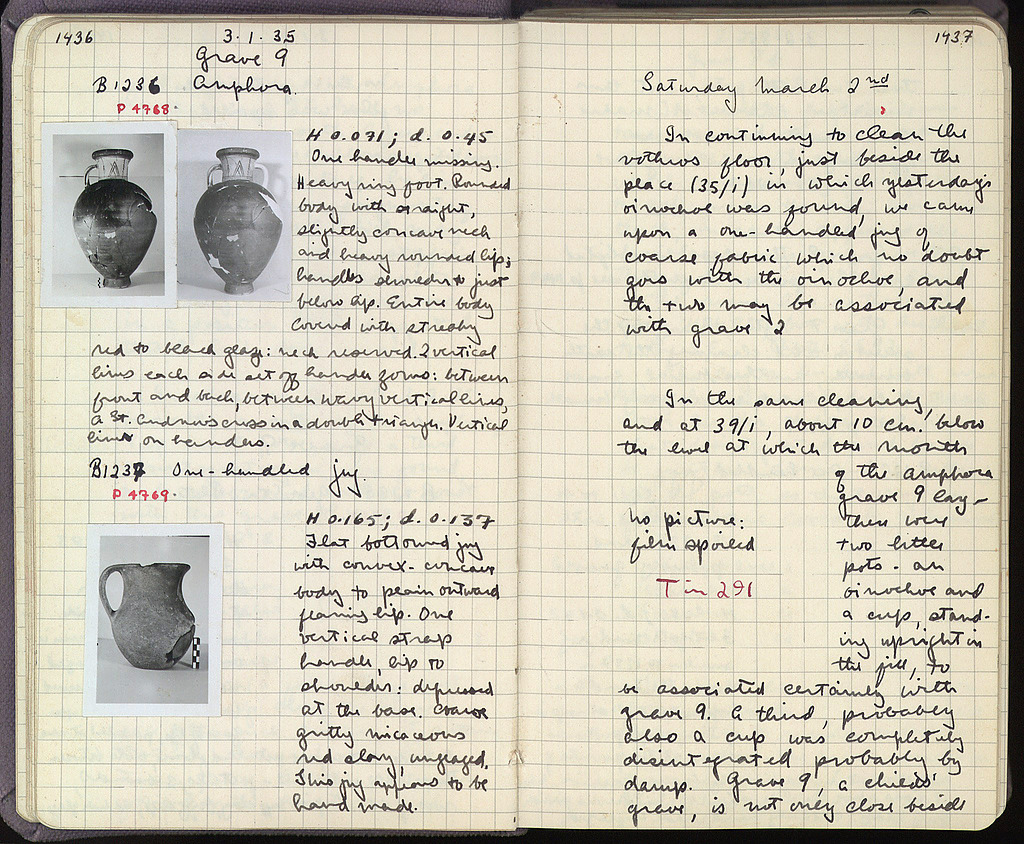 1436
3.1.35
Grave 9
B1236 Amphora.
P 4768.
H 0.071; d. 0.45
One handle missing.
Heavy ring foot. Rounded
body with straight,
slightly concave neck
and heavy rounded lip;
handles shoulder to just
below lip. Entire body
covered with streaky
red to black glaze: neck reserved. 2 vertical
lines each side set off handle zones: between
front and back, between wavy vertical lines,
a St. Andrew's cross in a double triangle. Vertical
lines on handles.
B1237 One-handled jug.
P 4769.
H 0.165; d. 0.137
Flat bottomed jug
with convex-concave
body to plain outward
flaring lip. One
vertical strap
handle, lip to
shoulder: depressed
at the base. Coarse
gritty micaceous
red clay, unglazed.
This jug appears to be
hand made.
1437
Saturday March 2nd
In continuing to clean the
bothros floor, just beside the
place (35/i) in which yesterday's
oinochoe was found, we came
upon a one-handled jug of
coarse fabric which no doubt
goes with the oinochoe, and
the two may be associated
with grave 2
In the same cleaning,
and at 39/i, about 10 cm. below
the level at which the mouth
of the amphora
grave 9 lay-
there were
two little
pots - an
oinochoe and
a cup, stand-
ing upright in
the fill, to
be associated certainly with
grave 9. A third, probably
also a cup was completely
disintegrated probably by
damp. Grave 9, a child's
grave, is not only close beside
no picture:
film spoiled
T in 291